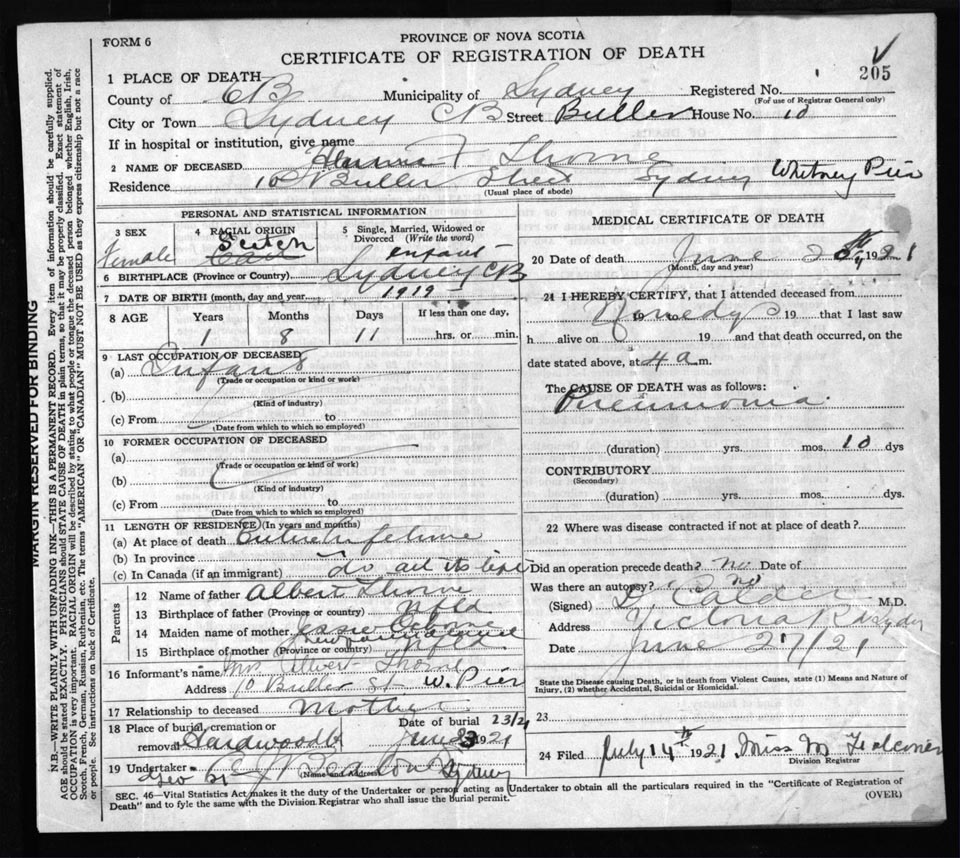 FORM 6
PROVINCE OF NOVA SCOTIA
CERTIFICATE OF REGISTRATION OF DEATH
205
1 PLACE OF DEATH
County of CB Municipality of Sydney Registered No.
(For use of Registrar General only)
City or Town Sydney CB Street Butler House No. 10
If in hospital or institution, give name
2 NAME OF DECEASED Thorne
Residence 10 Butler Street Sydney Whitney Pier
(Usual place of abode)
PERSONAL AND STATISTICAL INFORMATION
3 SEX 4 RACIAL ORIGIN 5 Single, Married, Widowed or Divorced (Write the word)
Female infant
6 BIRTHPLACE (Province or Country) Sydney CB
7 DATE OF BIRTH (month, day and year) 1919
8 AGE Years Months Days If less than one day,
1 8 11 hrs. or min.
9 LAST OCCUPATION OF DECEASED
(a) Infant
(Trade or occupation or kind or work)
(b)
(Kind of industry)
(c) From to
(Date from which to which so employed)
10 FORMER OCCUPATION OF DECEASED
(a)
(Trade or occupation or kind of work)
(b)
(Kind of industry)
(c) From to
(Date from which so which so employed)
11 LENGTH OF RESIDENCE (In years and months)
(a) At place of death Entire Lifetime
(b) In province
(c) In Canada (if an immigrant) do all its life
Parents
12 Name of father Albert Thorne
13 Birthplace of father (Province or country) Nfld
14 Maiden name of mother Jessie Osborne
15 Birthplace of mother (Province or country) Newfoundland
16 Informant's name Mrs Albert Thorne
Address 10 Butler St W. Pier
17 Relationship to deceased Mother
18 Place of burial, cremation or removal Hardwood Date of burial 23/21
June 23 1921
19 Undertaker Sydney
(Name and Address)
MEDICAL CERTIFICATE OF DEATH
20 Date of death June 1921
(Month, day and year)
21 I HEREBY CERTIFY, that I attended deceased from
19 to 19 that I last saw
h alive on 19 and that death occurred, on the
date stated above, at 4 a m.
The CAUSE OF DEATH was as follows:
Pneumonia
(duration) yrs. mos. 10 dys
CONTRIBUTORY
(Secondary)
(duration) yrs. mos. dys.
22 Where was disease contracted if not at place of death?
Did an operation precede death? no Date of
Was there an autopsy? no
(Signed) Calder M.D.
Address Victoria Rd Sydney
Date June 27/21
State the Disease causing Death, or in death from Violent Causes, state (1) Means and Nature of Injury, (2) whether Accidental, Suicidal or Homicidal.
23
24 Filed July 14th 1921 Miss M Falconer
Division Registrar
SEC. 46—Vital Statistics Act makes it the duty of the Undertaker or person acting as Undertaker to obtain all the particulars required in the "Certificate of Registration of
Death" and to fyle the same with the Division Registrar who shall issue the burial permit.
(OVER)
MARGIN RESERVED FOR BINDING
N.B.—WRITE PLAINLY WITH UNFADING INK—THIS IS A PERMANENT RECORD. Every item of information should be carefully supplied.
AGE should be stated EXACTLY. PHYSICIANS should STATE CAUSE OF DEATH in plain terms, so that it may be properly classified. Exact statement of
OCCUPATION is very important. RACIAL ORIGIN will be described by stating to what people or tongue the deceased person belonged whether English, Irish,
Scotch, French, German, Russian, Ruthenian, etc. The terms "AMERICAN" or "CANADIAN" MUST NOT BE USED as they express citizenship but not a race
or people. See instructions on back of Certificate.